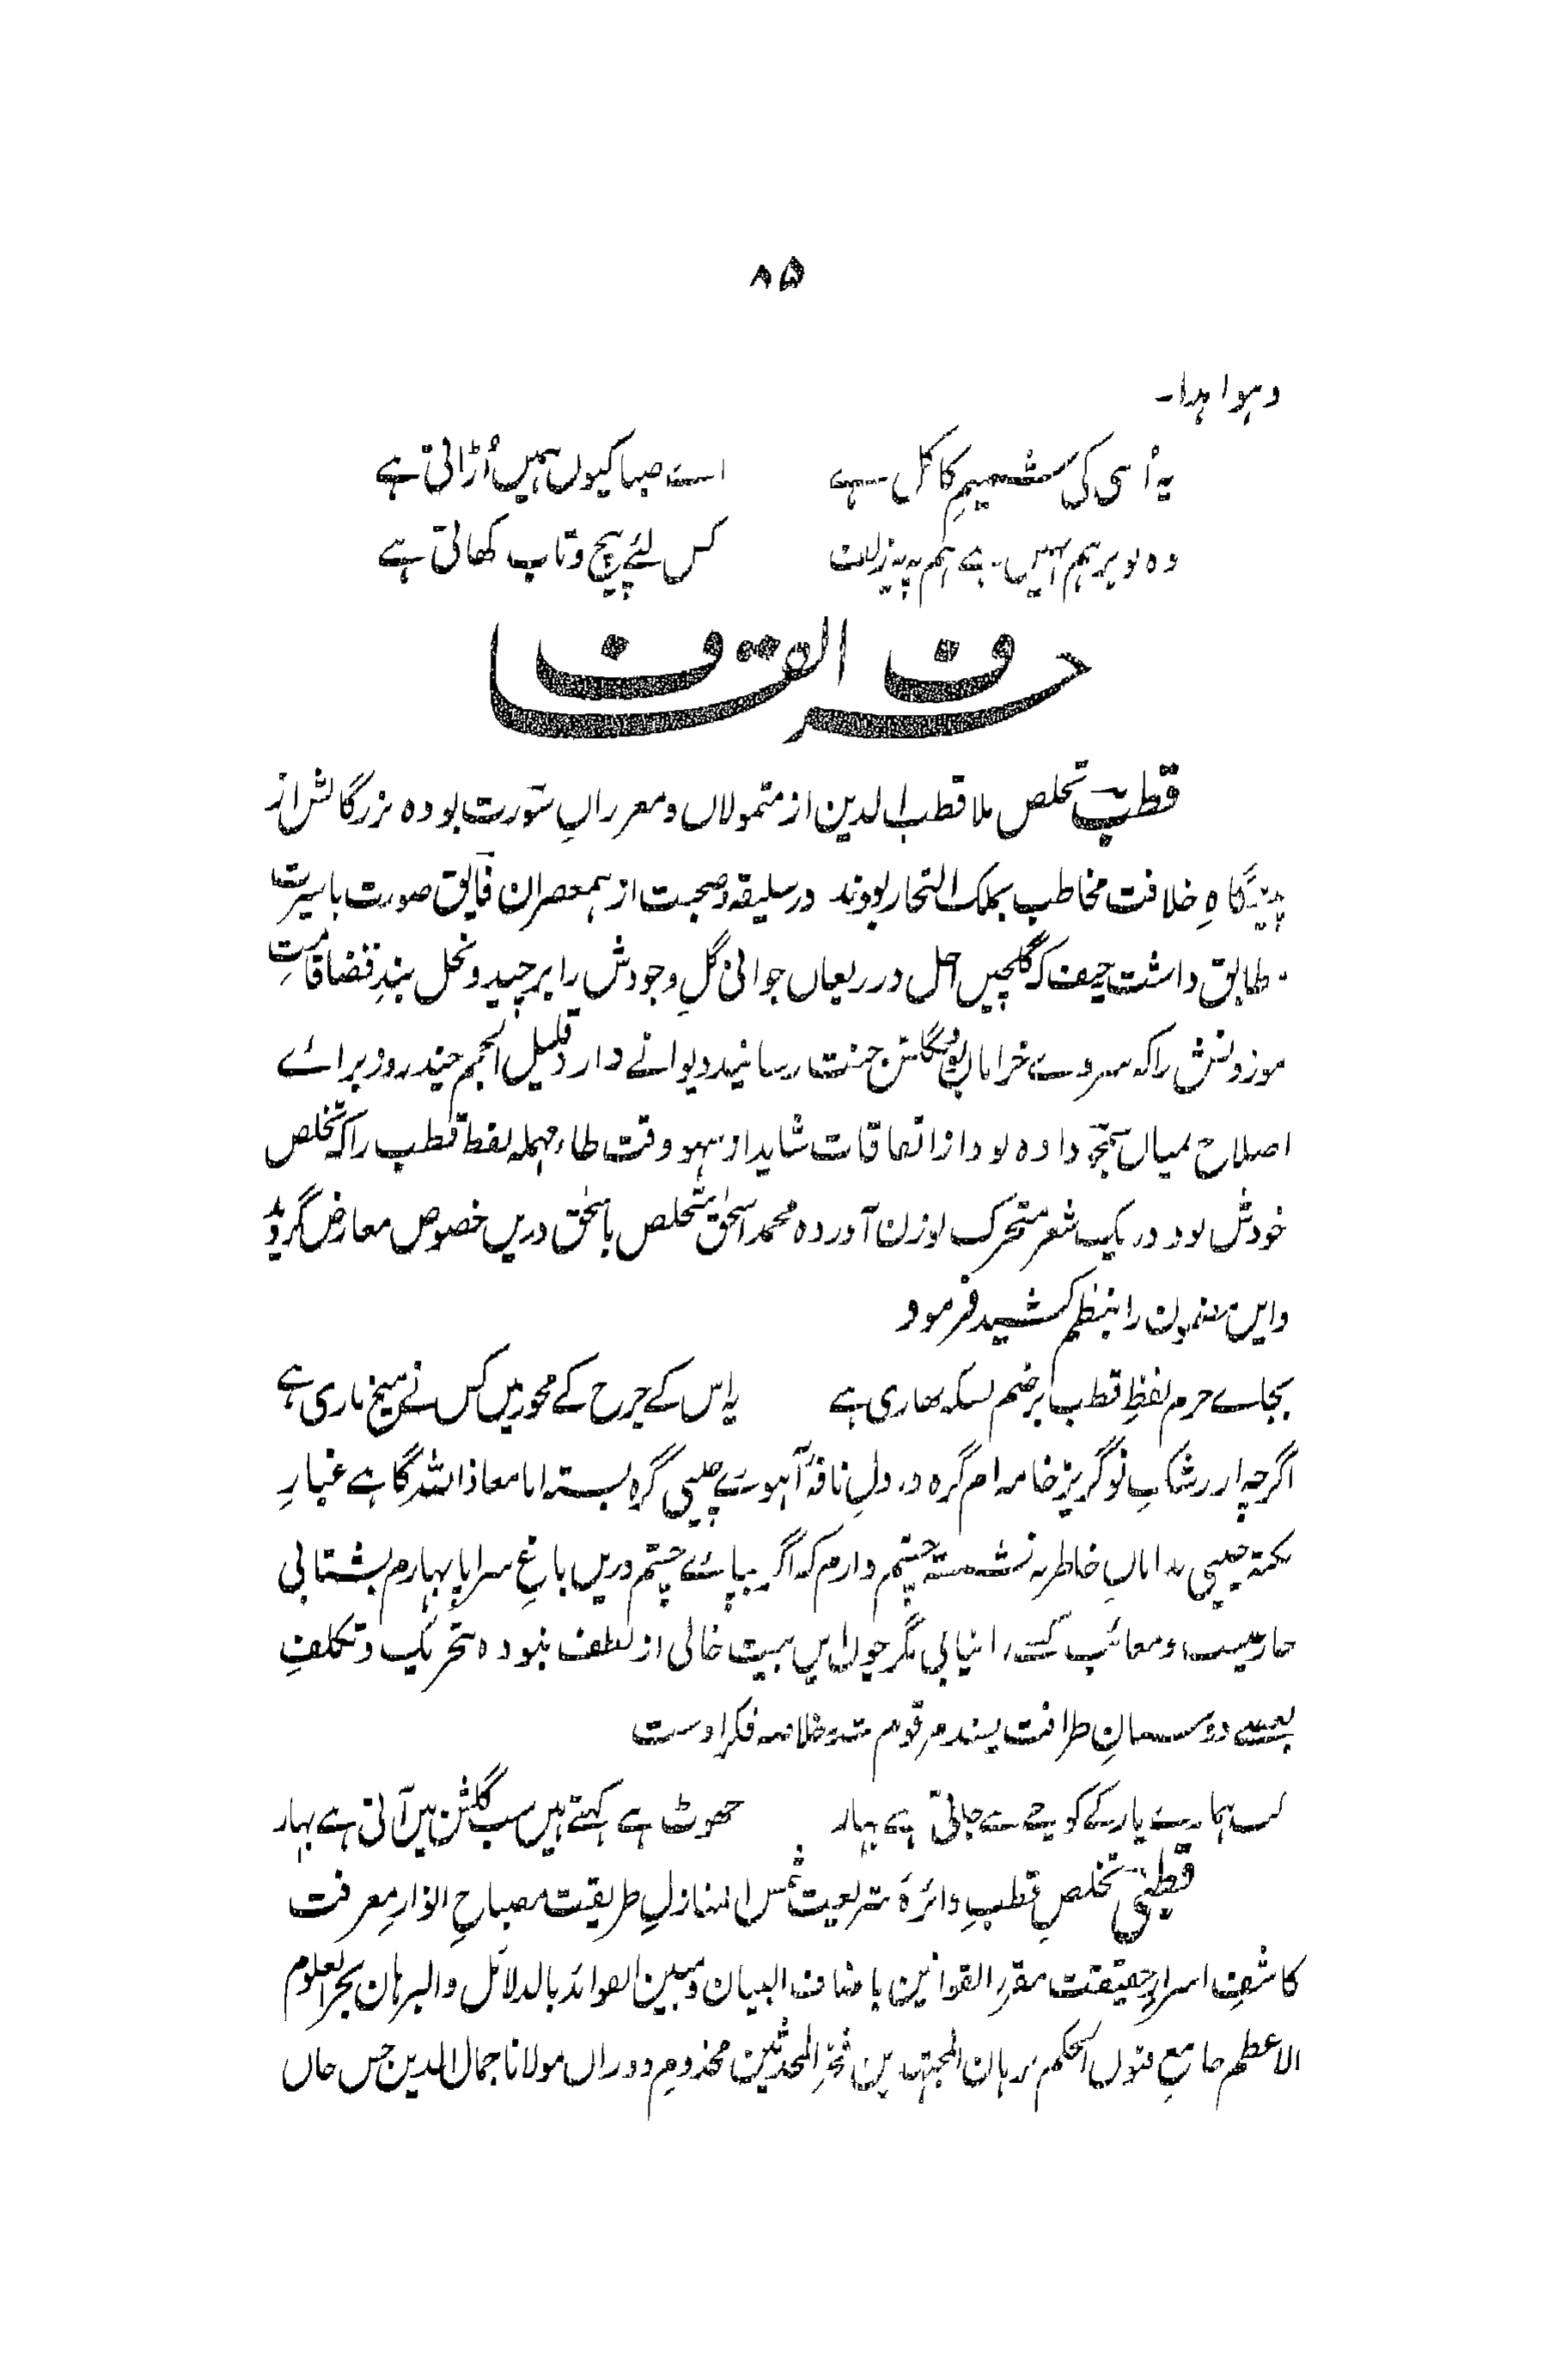 ۸۵
وہوا ہذا۔
یہ اُسی کی شمیمِ کاکل ہے اے صبا کیوں ہمیں اُڑاتی ہے
وہ تو برہم نہیں ہے ہم پہ یہ زلف کس لئے پیچ و تاب کھاتی ہے
حرف القاف
قطب تخلص ملا قطب الدین از متمولاں و معزرانِ سورت بودہ بزرگانش از
پیشگاہِ خلافت مخاطب بملک التجار بودند در سلیقہ و صحبت از ہمعصران فایق صورت با سیرت
مطابق داشت حیف کہ گلچیں اجل در ریعان جوانی گلِ وجودش را برچید و نخل بندِ قضا قامتِ
موزونش را کہ سروے خراماں بود بگلشن جنت رسانید دیوانے دارد قلیل الحجم چند روز برائے
اصلاح بمیاں سمجھو دادہ بود از اتفاقات شاید از سہو وقت طاء مہملہ لفظ قطب را کہ تخلص
خودش بود در یک شعر متحرک بوزن آوردہ محمد اسحٰق متخلص باسحٰق دریں خصوص معارض گردیدہ
و ایں مضمون را بنظم کشید فرمود
بجاے جزم لفظِ قطب پر ضم ہے یہ اس کے چرخ کے محور میں کس نے میخ ماری ہے
اگرچہ از رشکِ نوگریز خامہ ام گرہ در دلِ نافۂ آہوے چینی گرہ بستہ اما معاذ اللہ گاہے غبارِ
نکتہ چینی بداماں خاطر نہ نشستہ چشم دارم کہ اگر بپاے چشم دریں باغِ سراپا بہارم بشتابی
خار و معائب کسے را نیابی مگر چوں ایں بیت خالی از لطف نبودہ بتحریک و تکلفِ
بعضے دوستانِ ظرافت پسند مرقوم شد خلاصہ فکر اوست
کب ہمارے یار کے کوچے سے جاتی ہے بہار جھوٹ ہے کہتے ہیں سب گلشن میں آتی ہے بہار
قطبی تخلص قطبِ دائرۂ شریعت شمس المنازلِ طریقت مصباحِ انوارِ معرفت
کاشفِ اسرارِ حقیقت مقرر القوانین باضافت البیان و مبین الفوائد بالدلائل والبرہان بحر العلوم
الاعظم جامع فنون الحکم برہان المجتہدین فخر المحدثین مخدومِ دوراں مولانا جمال الدین حسن خاں